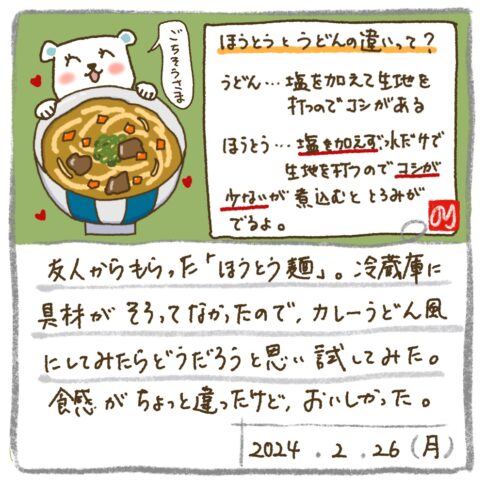 ごちそうさま
ほうとうとうどんの違いって?
うどん…塩を加えて生地を
打つのでコシがある
ほうとう…塩を加えず水だけで
生地を打つのでコシが
少ないが煮込むととろみが
でるよ。
友人からもらった「ほうとう麺」。冷蔵庫に
具材がそろってなかったので、カレーうどん風
にしてみたらどうだろうと思い試してみた。
食感がちょっと違ったけど、おいしかった。
2024.2.26(月)